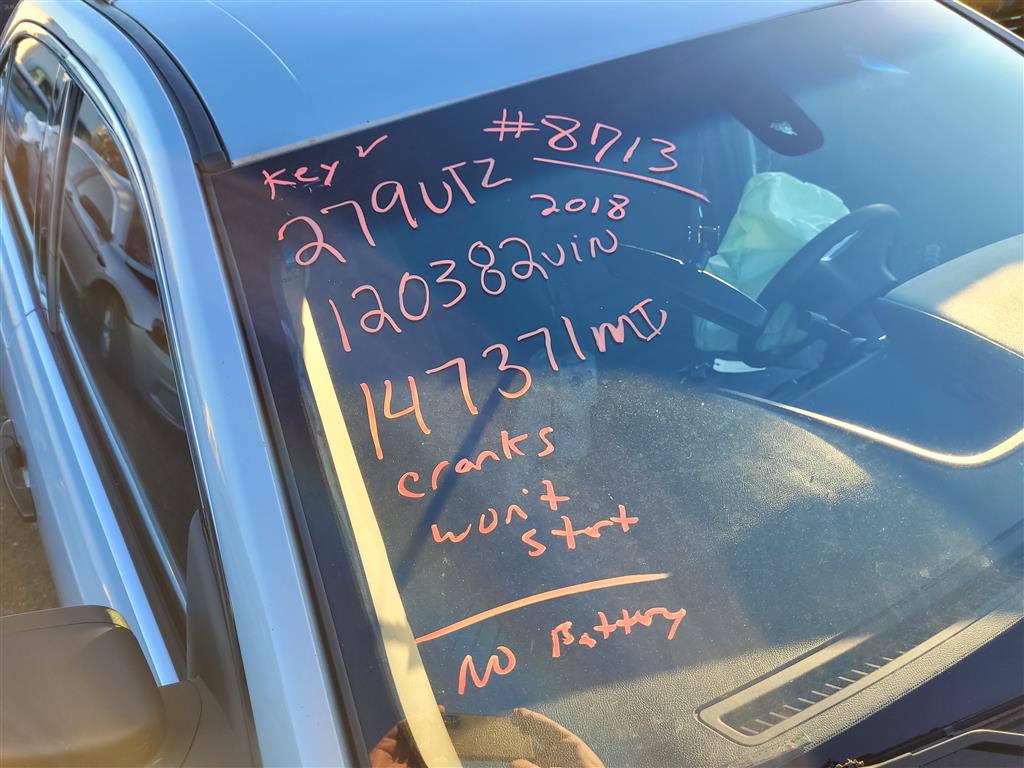 Key ✓
#8713
279UTZ
2018
120382VIN
147371MI
cranks
won't
strt
NO Battery